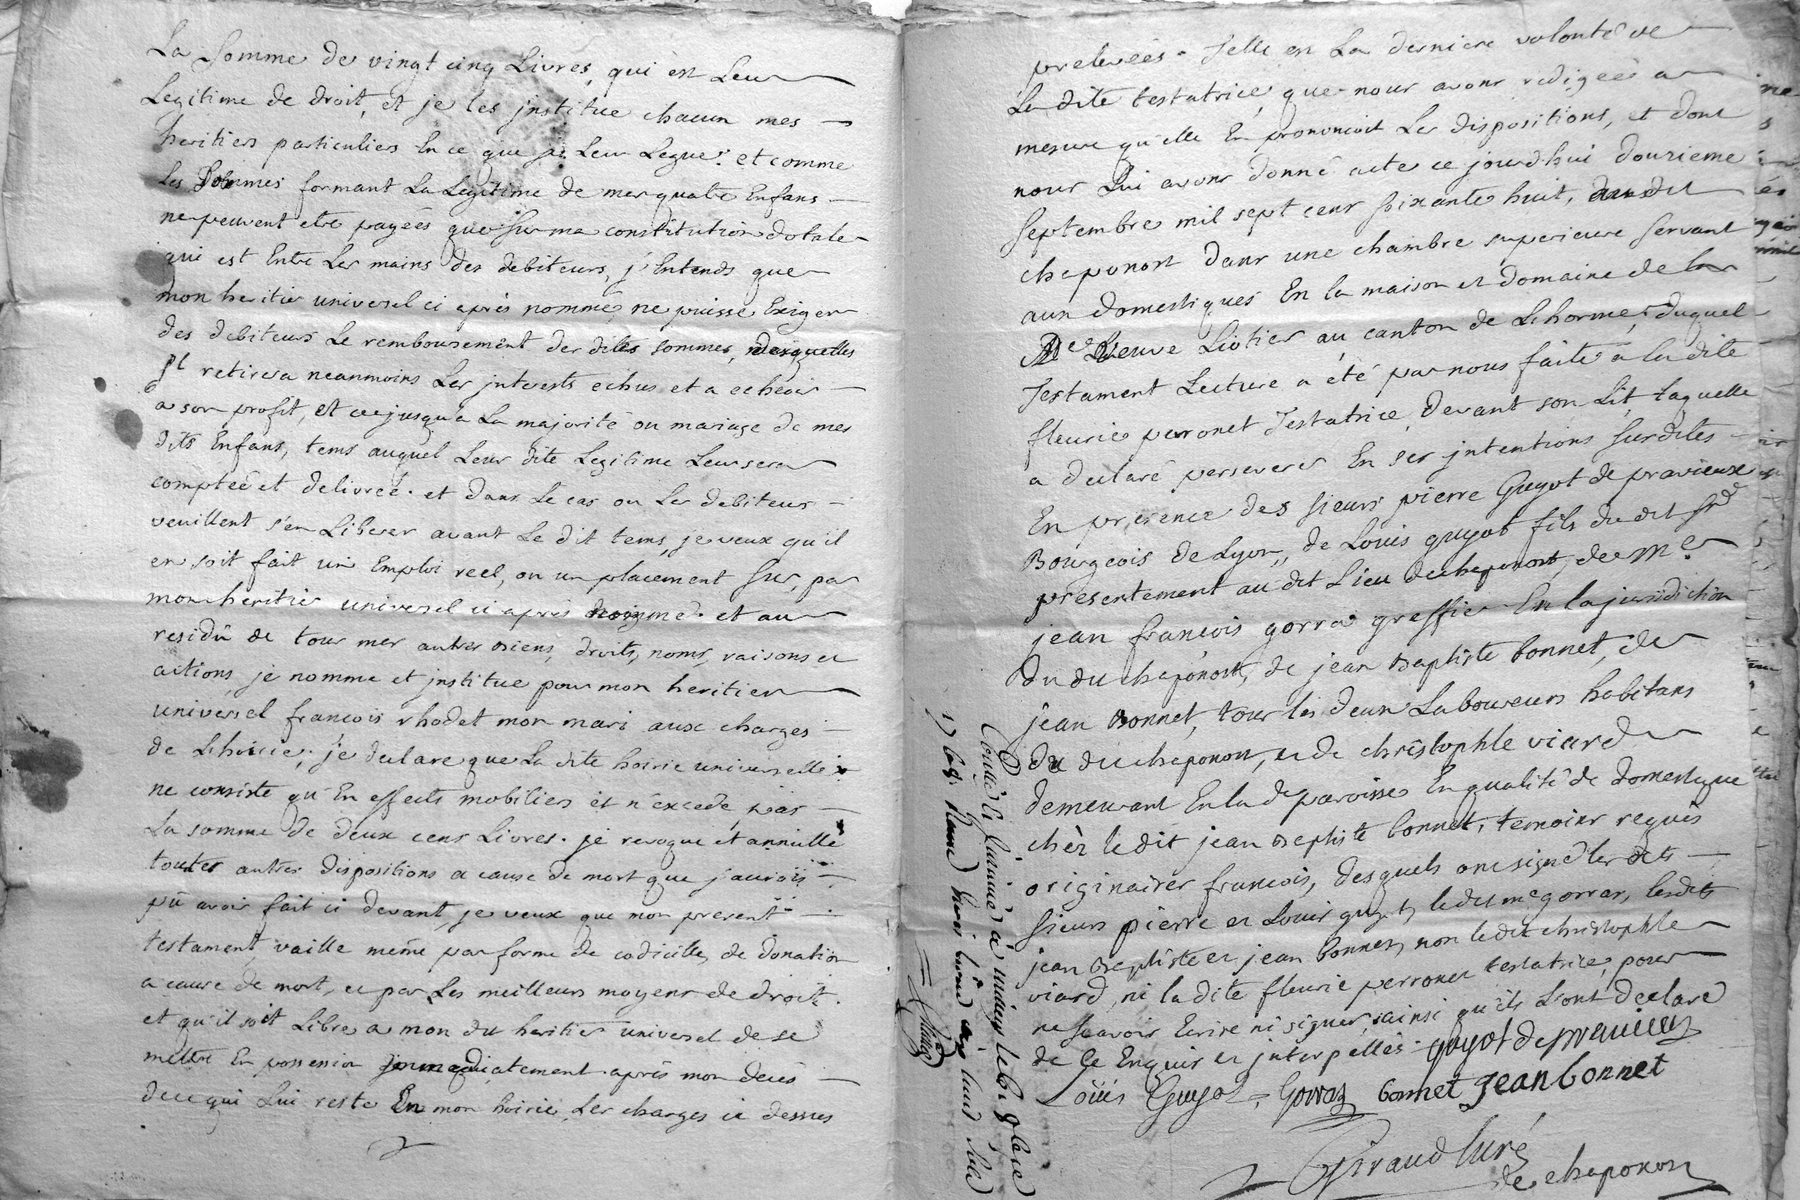 La somme de vingt cinq Livres, qui est Leur
Legitime de droit, et je les jnstitue chacun mes
heritiers particuliers En ce que je Leur Legue. et comme
les sommes formant La Legitime de mes quatre Enfans
ne peuvent etre payées que sur ma constitution dotale
qui est Entre Les mains des debiteurs, j'Entends que
mon heritier universel ci après nommé ne puisse Exiger
des debiteurs Le remboursement des dites sommes, desquelles
jl retirera neanmoins Les jnterests echus et a echeoir
a son profit, et ce jusqu'a La majorité ou mariage de mes
dits Enfans, tems auquel Leur dite Legitime Leur sera
comptée et delivrée. et dans Le cas ou Les debiteurs
veuillent s'en Liberer avant Le dit tems, je veux qu'il
en soit fait un Emploi reel, ou un placement sur, par
mon heritier universel ci après nommé. et au
residû de tous mes autres biens, droits, noms, raisons et
actions, je nomme et jnstitue pour mon heritier
universel françois rhodet mon mari aux charges
de Lhoirie. je declare que La dite hoirie universelle
ne consiste qu'En effects mobiliers et n'excede pas
La somme de deux cens Livres. je revoque et annulle
toutes autres dispositions a cause de mort que j'aurois
pû avoir fait ci devant, je veux que mon present
testament vaille même par forme de codicille, de donation
a cause de mort, et par Les meilleurs moyens de droit.
et qu'il soit Libre a mon du heritier universel de se
mettre En possession jmmediatement après mon decès
de ce qui Lui reste En mon hoirie Les charges ci dessus
prelevées. Telle est La derniere volonté de
La dite testatrice, que nous avons redigée a
mesure qu'elle En prononcoit Les dispositions, et dont
nous Lui avons donné acte ce jourd'hui douzieme
septembre mil sept cens soixante huit, audit
chaponost dans une chambre superieure servant
aux domestiques En la maison et Domaine de la
De Veuve Liotier au canton de Lhorme, duquel
Testament Lecture a été par nous faite a la dite
fleurie perronet Testatrice, devant son Lit, laquelle
a declaré perseverer En ses jntentions susdites
En presence des sieurs pierre Guyot de pravieux
Bourgeois de Lyon, de Louis guyot fils du dit Sr
presentement au dit Lieu de chaponost, de Me
jean françois gorra greffier En la jurisdiction
du du chaponost, de jean Baptiste bonnet, de
jean Bonnet, tous les deux Laboureurs habitans
du du chaponost, et de christophle viard
demeurant En la de paroisse En qualité de domestique
chès le dit jean Baptiste bonnet, temoins requis
originaires francois, desquels ont signé les dits
sieurs pierre et Louis guyot, le dit me gorras, les dits
jean Baptiste et jean bonnet, non le dit christophle
viard, ni la dite fleurie perronet testatrice, pour
ne scavoir Ecrire ni signer, ainsi qu'ils L'ont declaré
de ce Enquis et jnterpellés. guyot de pravieux
Loüis Guyot Gorras bonnet jean bonnet
Giraud Curé
de chaponost